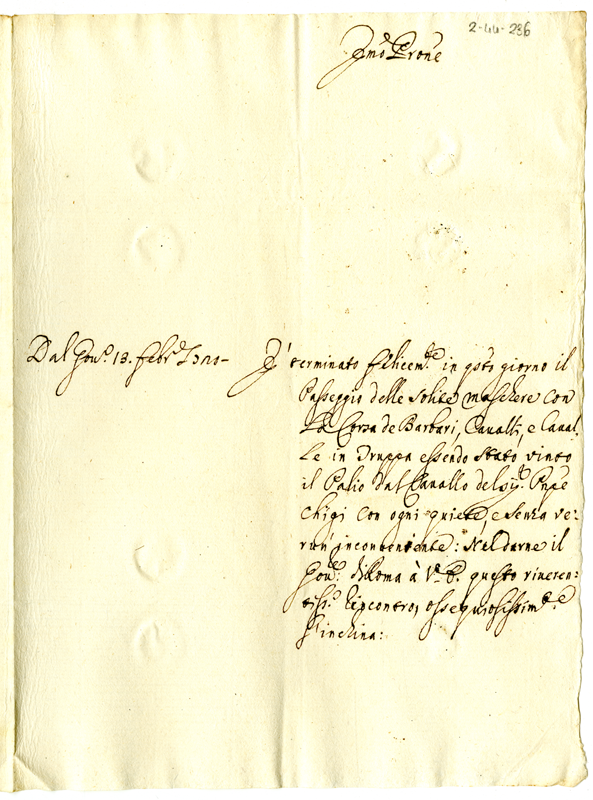 2-44-236
Emo Prone
Dal Gou.º 13. Febr.º
E' terminato felicem.te in q.sto giorno il
Passeggio delle solite maschere con
La Corsa de Barbari, Caualli, e Caual
Le in Truppa essendo stato uinto
il Palio dal Cauallo del sig.r Pnpe
Chigi con ogni quiete, e senza ve:
run' inconueniente: Nel darne il
Gou.r di Roma à V.ra E. questo riueren-
tiss.º riincontro, ossequiosissim.te
s'inchina: